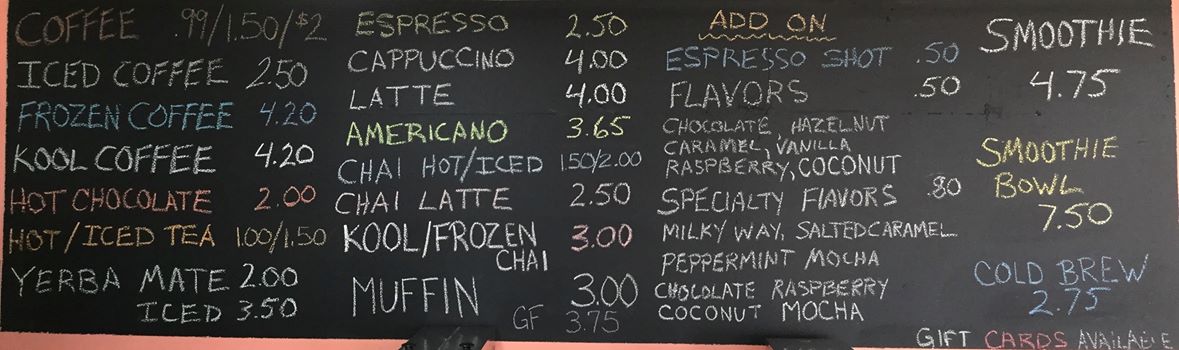 COFFEE .99/1.50/$2
ICED COFFEE 2.50
FROZEN COFFEE 4.20
KOOL COFFEE 4.20
HOT CHOCOLATE 2.00
HOT/ICED TEA 1.00/1.50
YERBA MATE 2.00
ICED 3.50
ESPRESSO 2.50
CAPPUCCINO 4.00
LATTE 4.00
AMERICANO 3.65
CHAI HOT/ICED 1.50/2.00
CHAI LATTE 2.50
KOOL/FROZEN 3.00
CHAI
MUFFIN 3.00
GF 3.75
ADD ON
ESPRESSO SHOT .50
FLAVORS .50
CHOCOLATE, HAZELNUT
CARAMEL, VANILLA
RASPBERRY, COCONUT
SPECIALTY FLAVORS .80
MILKY WAY, SALTED CARAMEL
PEPPERMINT MOCHA
CHOCOLATE RASPBERRY
COCONUT MOCHA
SMOOTHIE
4.75
SMOOTHIE
BOWL
7.50
COLD BREW
2.75
GIFT CARDS AVAILABLE